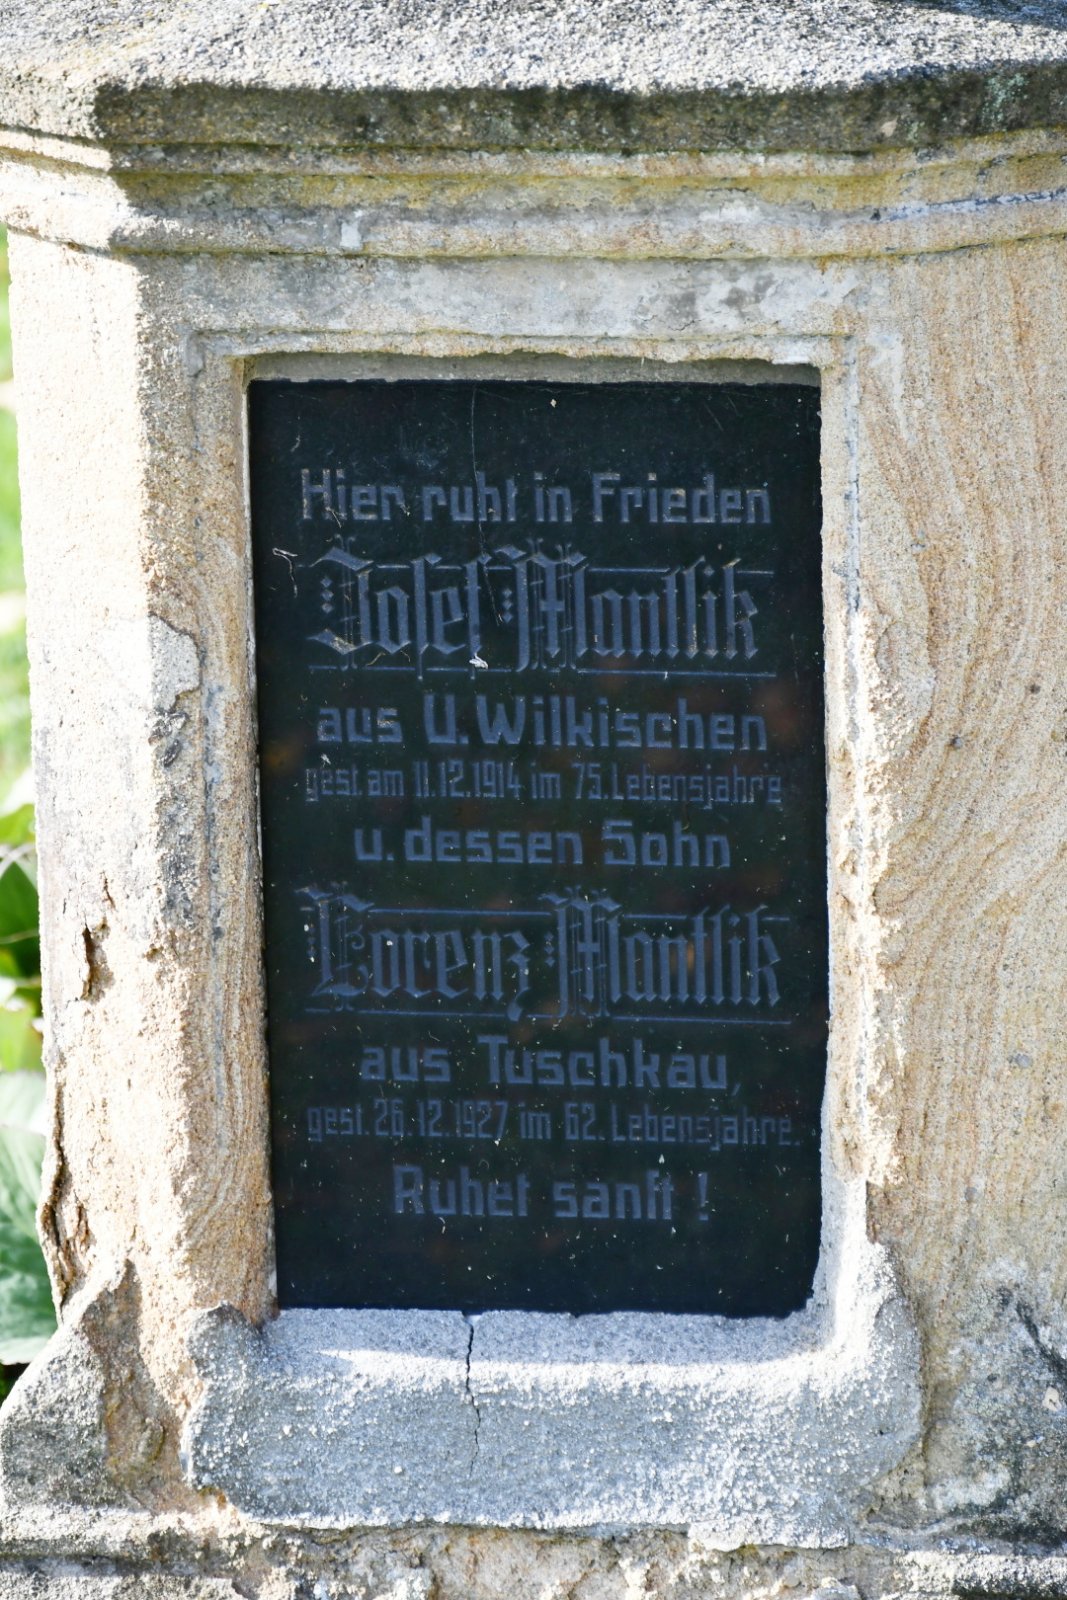 Hier ruht in Frieden
Josef Mantlik
aus U. Wilkischen
gest. am 11.12.1914 im 75. Lebensjahre
u. dessen Sohn
Lorenz Mantlik
aus Tuschkau,
gest. 26.12.1927 im 62. Lebensjahre.
Ruhet sanft !